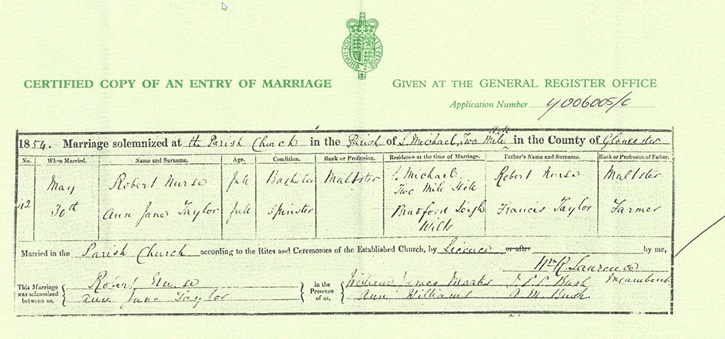 CERTIFIED COPY OF AN ENTRY OF MARRIAGE
GIVEN AT THE GENERAL REGISTER OFFICE
Application Number Y006005/C
1854. Marriage solemnized at the Parish Church in the Parish of S. Michael, Two Mile Hill in the County of Gloucester
No. When Married. Name and Surname. Age. Condition. Rank or Profession. Residence at the time of Marriage. Father's Name and Surname. Rank or Profession of Father.
42 May 30th
Robert Nurse full Bachelor Maltster S. Michael, Two Mile Hill Robert Nurse Maltster
Ann Jane Taylor full Spinster Bradford Leigh Wilts Francis Taylor Farmer
Married in the Parish Church according to the Rites and Ceremonies of the Established Church, by Licence or after by me,
Wm R. Laurence
Incumbent
This Marriage was solemnized between us,
Robert Nurse
Ann Jane Taylor
in the Presence of us,
William James Marks
Ann Williams
Bush
A. M. Bush